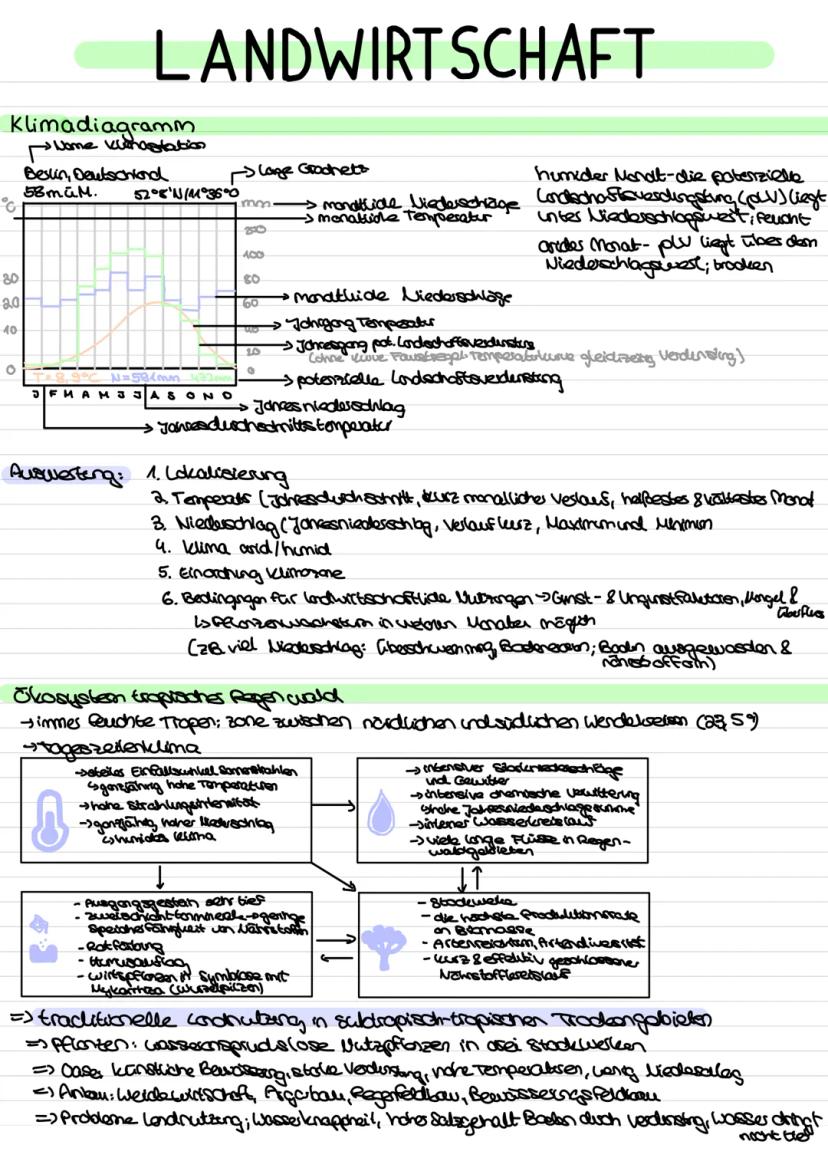 LANDWIRTSCHAFT
Klimadiagramm
→ Name Klimastation
Berlin, Deutschland → Lage Gradnetz
58 m ü.M. 52°8'N/11°36'O
°C mm → monatliche Niederschläge
→ monatliche Temperatur
100
30 80
20 60 → monatliche Niederschläge
10 → Jahrgang Temperatur
→ Jahresgang pot. Landschaftsverdunstung
(ohne Kurve Faustregel Temperaturkurve gleichzeitig Verdunstung)
0 0 → potenzielle Landschaftsverdunstung
T=8,9°C N=581mm
J F M A M J J A S O N D
→ Jahresniederschlag
→ Jahresdurchschnittstemperatur
humider Monat - die potenzielle
Landschaftsverdunstung (pLV) liegt
unter Niederschlagswert; feucht
arides Monat - pLV liegt über dem
Niederschlagswert; trocken
Auswertung: 1. Lokalisierung
2. Temperatur (Jahresdurchschnitt, kurz monatlicher Verlauf, heißestes & kältestes Monat
3. Niederschlag (Jahresniederschlag, Verlauf kurz, Maximum und Minimum
4. Klima arid/humid
5. Einordnung Klimazone
6. Bedingungen für landwirtschaftliche Nutzungen → Gunst- & Ungunstfaktoren, Mangel &
Überfluss
↳ Pflanzenwachstum in welchen Monaten möglich
(zB viel Niederschlag: Überschwemmung, Bodenerosion; Boden ausgewaschen &
nährstoffarm)
Ökosystem tropischer Regenwald
→ immer feuchte Tropen: Zone zwischen nördlichen und südlichen Wendekreisen (23,5°)
→ Tageszeitenklima
→ steiles Einfallswinkel Sonnenstrahlen
↳ ganzjährig hohe Temperaturen
→ hohe Strahlungsintensität
→ ganzjährig hoher Niederschlag
↳ humides Klima
→ intensiver Starkniederschläge
und Gewitter
→ intensive chemische Verwitterung
↳ hohe Jahresniederschlagssumme
→ interner Wasserkreislauf
→ viele lange Flüsse in Regen-
waldgebieten
- Ausgangsgestein sehr tief
- Zweischichttonminerale → geringe
Speicherfähigkeit von Nährstoffen
- Rotfärbung
- Humusauflag
- Wirtspflanzen in Symbiose mit
Mykorrhiza (Wurzelpilzen)
- Stockwerke
- die höchste Produktionsrate
an Biomasse
- Artenreichtum, Artendiversität
- kurz & effektiv geschlossene
Nährstoffkreislauf
⇒ traditionelle Landnutzung in subtropisch-tropischen Trockengebieten
⇒ Pflanzen: wasseranspruchslose Nutzpflanzen in drei Stockwerken
⇒ Oase: künstliche Bewässerung, starke Verdunstung, hohe Temperaturen, wenig Niederschlag
⇒ Anbau: Weidewirtschaft, Regenfeldbau, Bewässerungsfeldbau
⇒ Probleme Landnutzung; Wasserknappheit, hoher Salzgehalt Boden durch Verdunstung, Wasser dringt
nicht tief